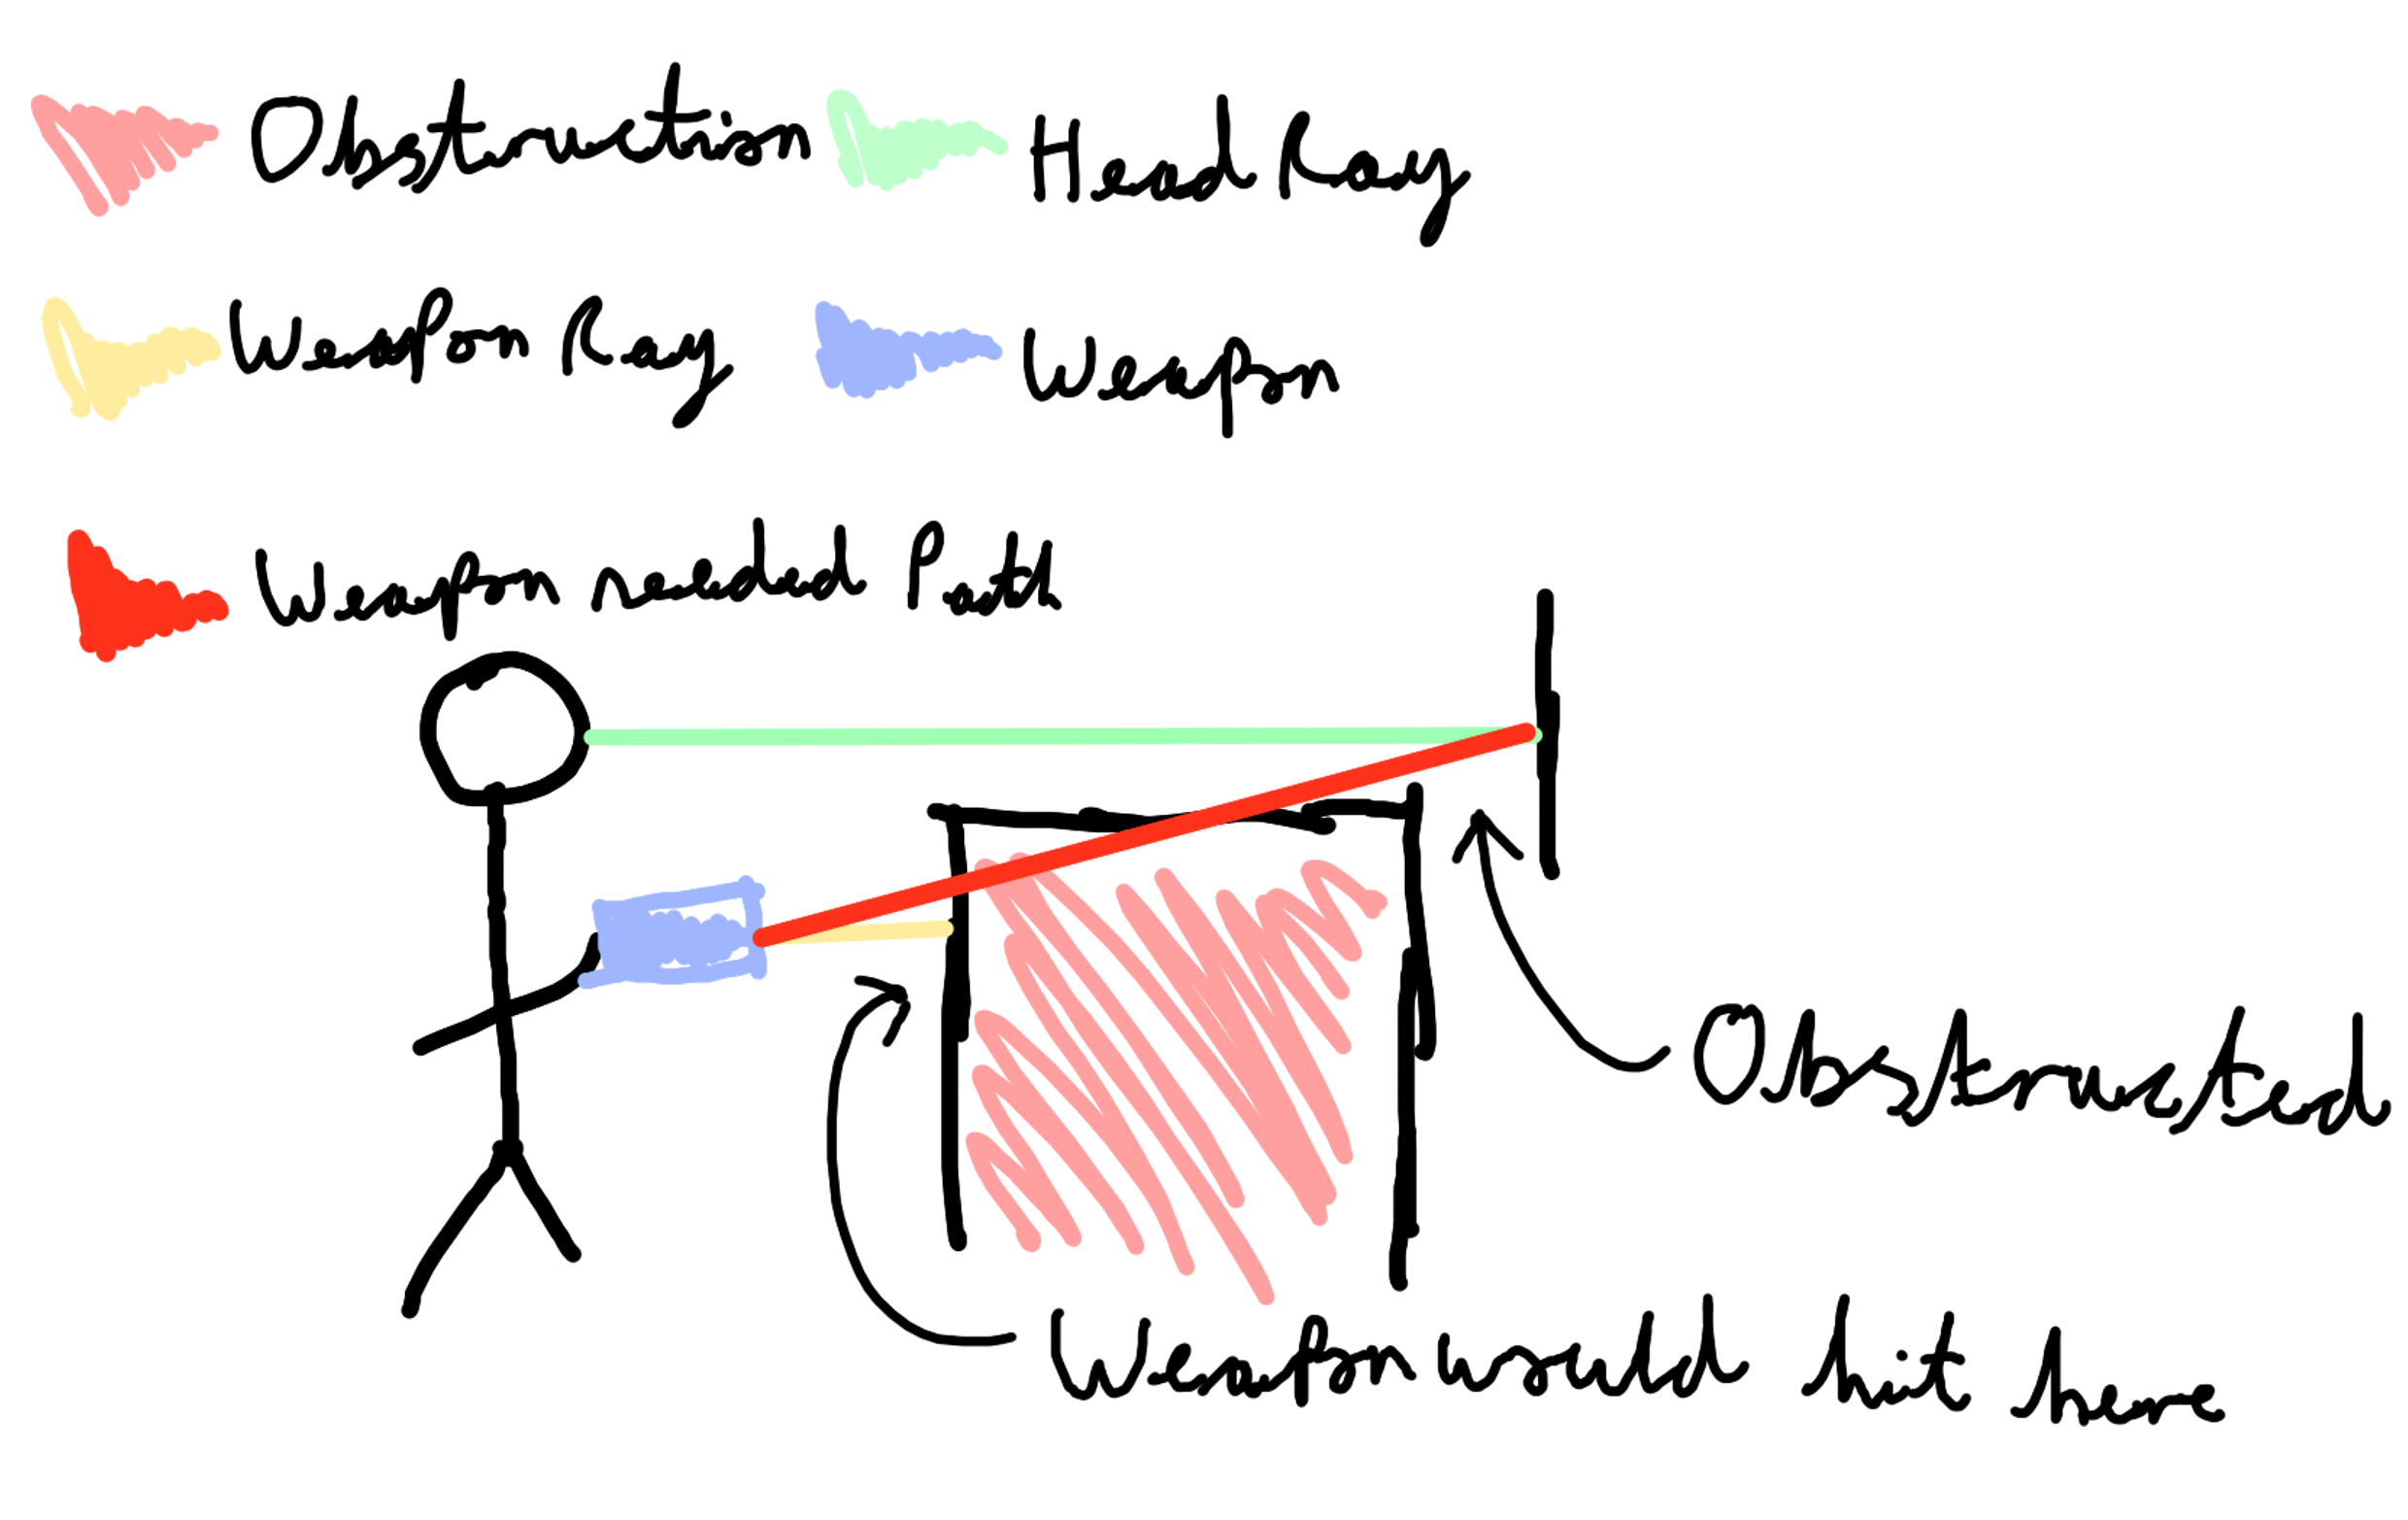 Obstruction
Head Ray
Weapon Ray
Weapon
Weapon needed Path
Obstructed
Weapon would hit here